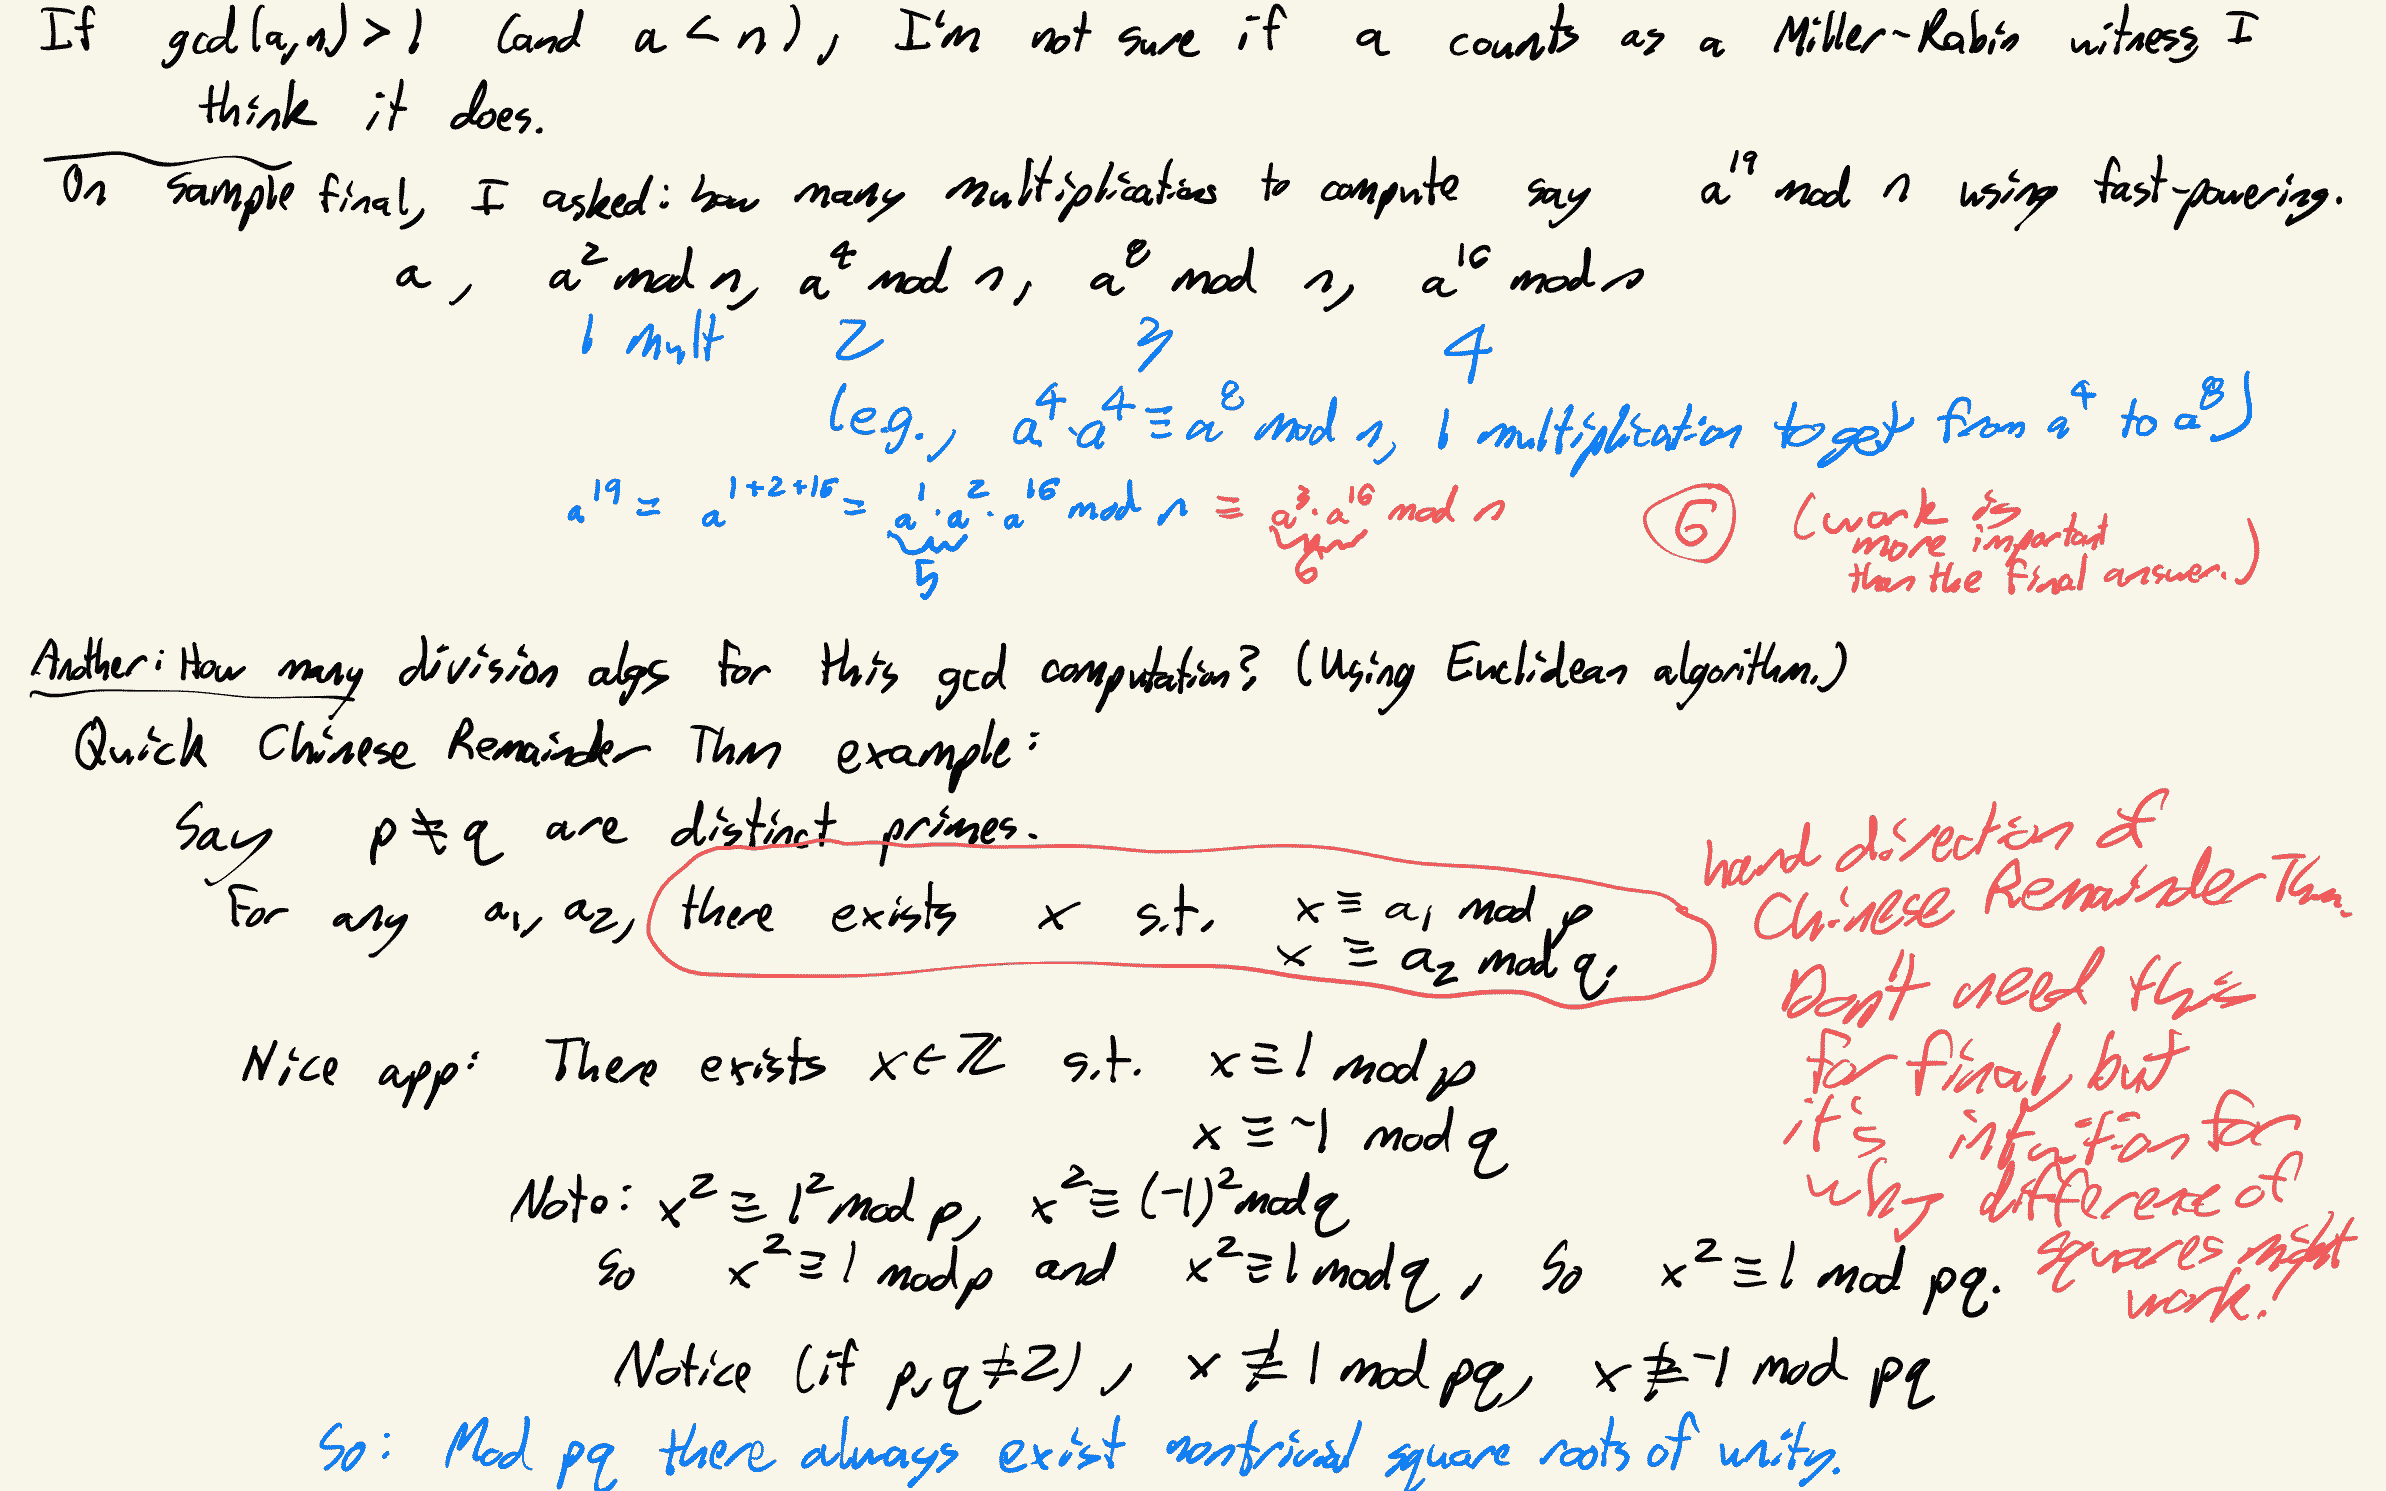 If gcd(a,n) > 1 (and a < n), I'm not sure if a counts as a Miller-Rabin witness, I
think it does.
On sample final, I asked: how many multiplications to compute say a^19 mod n using fast-powering.
a, a^2 mod n, a^4 mod n, a^8 mod n, a^16 mod n
1 mult 2 3 4
(e.g., a^4 · a^4 ≡ a^8 mod n, 1 multiplication to get from a^4 to a^8)
a^19 = a^{1+2+16} = a^1 · a^2 · a^16 mod n ≡ a^3 · a^16 mod n 6 (work is
more important
than the final answer.)
5 6
Another: How many division algs for this gcd computation? (Using Euclidean algorithm.)
Quick Chinese Remainder Thm example:
Say p ≠ q are distinct primes.
For any a_1, a_2, there exists x s.t. x ≡ a_1 mod p
x ≡ a_2 mod q.
hard direction of
Chinese Remainder Thm.
Don't need this
for final, but
it's intuition for
why difference of
squares might
work!
Nice app: There exists x ∈ ℤ s.t. x ≡ 1 mod p
x ≡ -1 mod q
Note: x^2 ≡ 1^2 mod p, x^2 ≡ (-1)^2 mod q
So x^2 ≡ 1 mod p and x^2 ≡ 1 mod q, So x^2 ≡ 1 mod pq.
Notice (if p, q ≠ 2), x ≢ 1 mod pq, x ≢ -1 mod pq
So: Mod pq there always exist nontrivial square roots of unity.